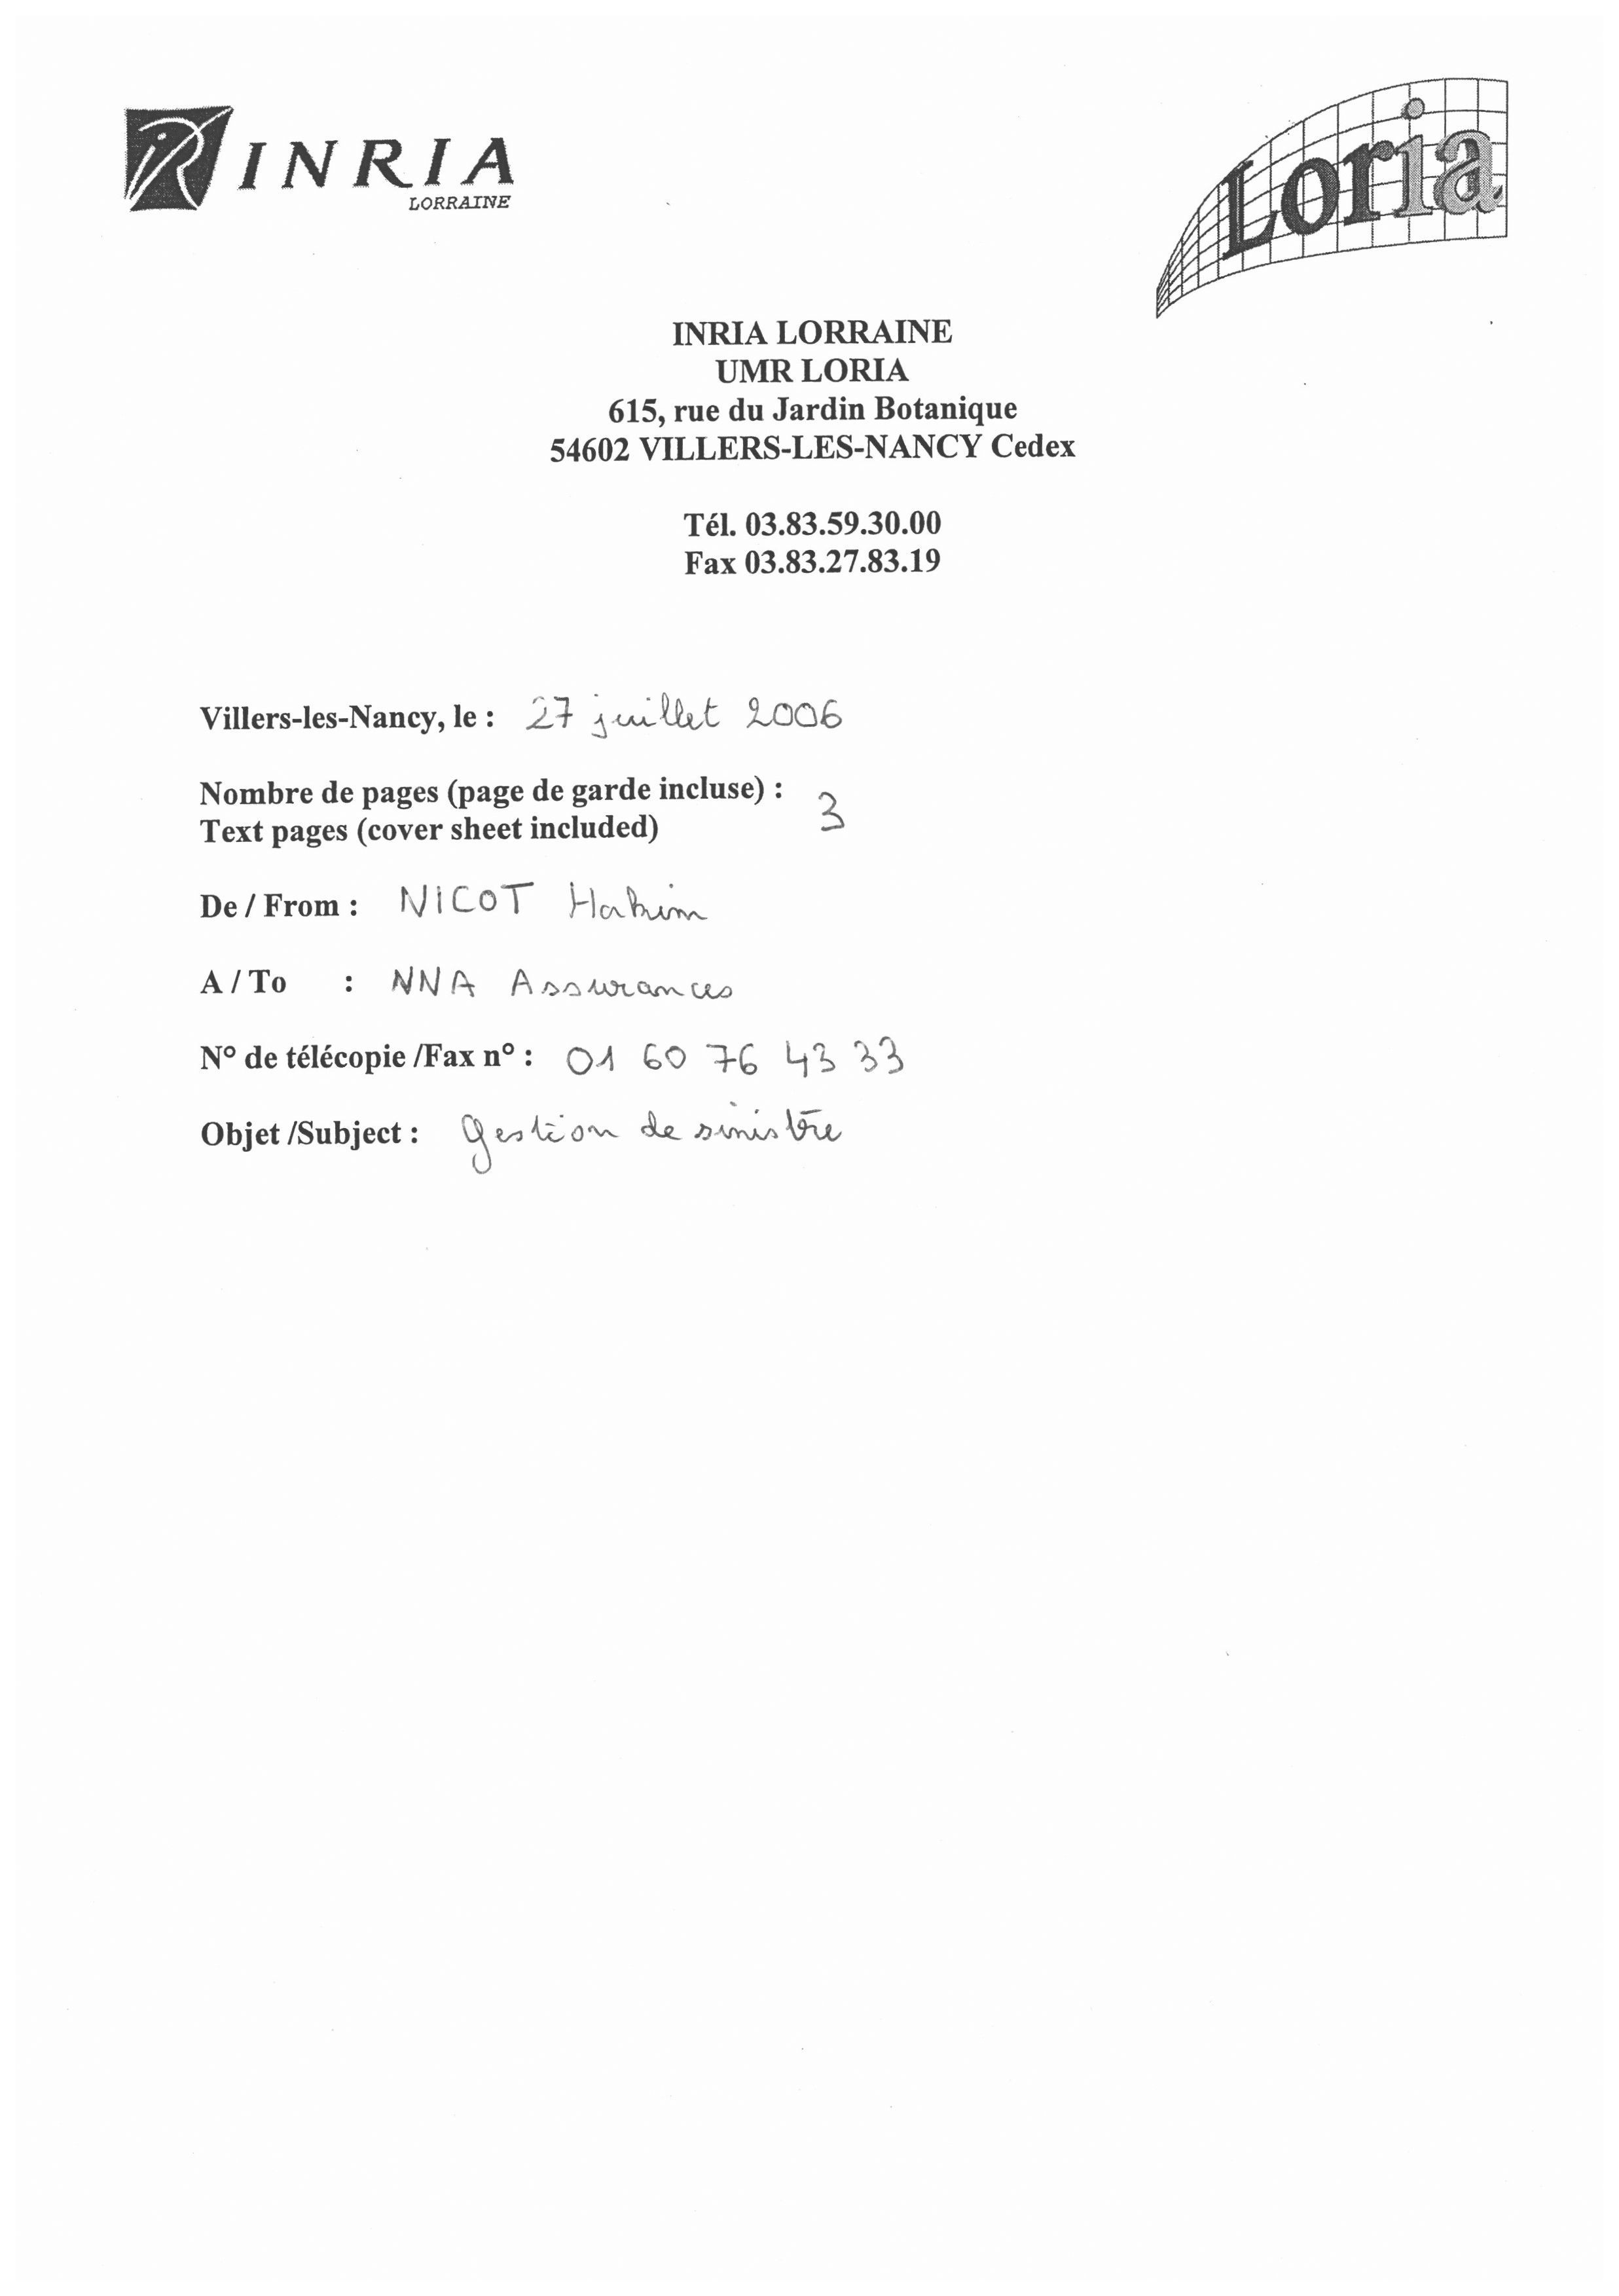 INRIA
LORRAINE
Loria
INRIA LORRAINE
UMR LORIA
615, rue du Jardin Botanique
54602 VILLERS-LES-NANCY Cedex
Tél. 03.83.59.30.00
Fax 03.83.27.83.19
Villers-les-Nancy, le : 27 juillet 2006
Nombre de pages (page de garde incluse) : 3
Text pages (cover sheet included)
De / From : NICOT Hakim
A / To : NNA Assurances
N° de télécopie /Fax n° : 01 60 76 43 33
Objet /Subject : gestion de sinistre